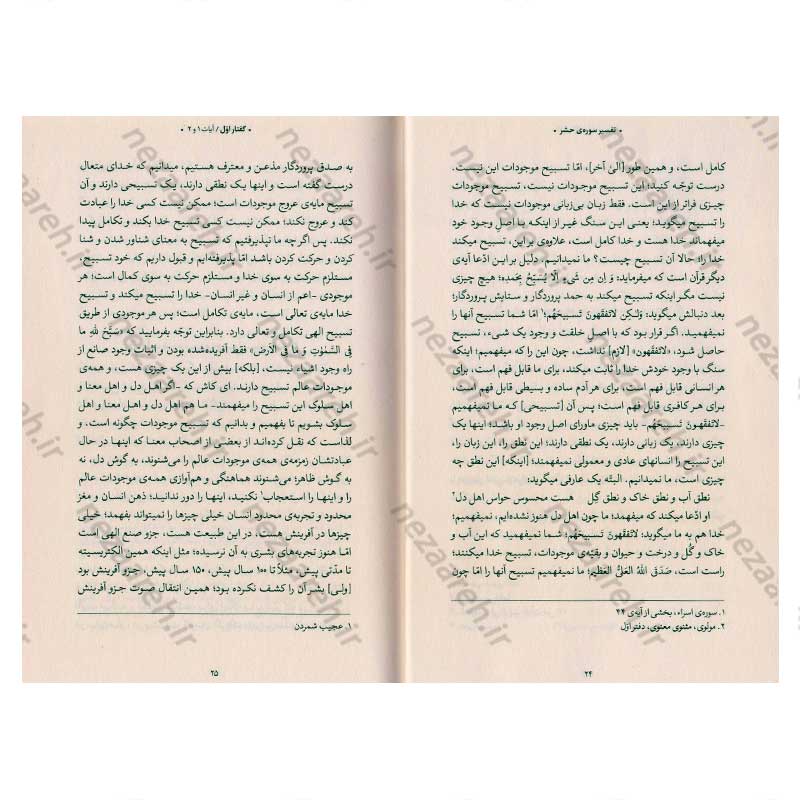 • تفسیر سوره‌ی حشر •
کامل است، و همین طور [الیٰ آخر]، امّا تسبیح موجودات این نیست.
درست توجّه کنید؛ این تسبیح موجودات نیست، تسبیح موجودات
چیزی فراتر از این است. فقط زبان بی‌زبانی موجودات نیست که خدا
را تسبیح میگوید؛ یعنی این سنگ غیر از اینکه با اصل وجود خود
میفهماند خدا هست و خدا کامل است، علاوه‌ی بر این، تسبیح میکند
خدا را؛ حالا آن تسبیح چیست؟ ما نمیدانیم. دلیل بر این ادّعا آیه‌ی
دیگر قرآن است که میفرماید: وَ اِن مِن شَیءٍ اِلّا یُسَبِّحُ بِحَمدِه؛ هیچ چیزی
نیست مگر اینکه تسبیح به حمد پروردگار و ستایش پروردگار؛
بعد دنبالش میگوید: وَلٰـکِن لاتَفقَهونَ تَسبیحَهُم؛۱ امّا شما تسبیح آنها را
نمیفهمید. اگر قرار بود که با اصل خلقت و وجود یک شیء، تسبیح
حاصل شود، «لاتفقهون» [لازم] نداشت، چون این را که میفهمیم؛ اینکه
سنگ با وجود خودش خدا را ثابت میکند، برای ما قابل فهم است، برای
هر انسانی قابل فهم است، برای هر آدم ساده و بسیطی قابل فهم است،
برای هر کافری قابل فهم است؛ پس آن [تسبیحی] که ما نمیفهمیم
-لاتَفقَهونَ تَسبیحَهُم- باید چیزی ماورای اصل وجود او باشد؛ اینها یک
چیزی دارند، یک زبانی دارند، یک نطقی دارند؛ این نطق را، این زبان را،
این تسبیح را انسانهای عادی و معمولی نمیفهمند؛ [اینکه] این نطق چه
چیزی است، ما نمیدانیم. البتّه یک عارفی میگوید:
نطق آب و نطق خاک و نطق گِل هست محسوس حواس اهل دل۲
او ادّعا میکند که میفهمد؛ ما که اهل دل هنوز نشده‌ایم، نمیفهمیم؛
خدا هم به ما میگوید: لاتَفقَهونَ تَسبیحَهُم؛ شما نمیفهمید که این آب و
خاک و گُل و درخت و حیوان و بقیّه‌ی موجودات، تسبیح خدا میکنند؛
راست است، صَدَقَ اللهُ العَلیُّ العَظیم؛ ما نمیفهمیم تسبیح آنها را امّا چون
۱. سوره‌ی اسراء، بخشی از آیه‌ی ۴۴
۲. مولوی، مثنوی معنوی، دفتر اوّل
۲۴
• گفتار اوّل / آیات ۱ و ۲ •
به صدق پروردگار مذعن و معترف هستیم، میدانیم که خدای متعال
درست گفته است و اینها یک نطقی دارند، یک تسبیحی دارند و آن
تسبیح مایه‌ی عروج موجودات است؛ ممکن نیست کسی خدا را عبادت
کند و عروج نکند؛ ممکن نیست کسی تسبیح خدا بکند و تکامل پیدا
نکند. پس اگرچه ما نپذیرفتیم که تسبیح به معنای شناور شدن و شنا
کردن و حرکت کردن باشد امّا پذیرفته‌ایم و قبول داریم که خود تسبیح،
مستلزم حرکت به سوی خدا و مستلزم حرکت به سوی کمال است؛ هر
موجودی -اعم از انسان و غیر انسان- خدا را تسبیح میکند و تسبیح
خدا مایه‌ی تعالی است، مایه‌ی تکامل است؛ پس هر موجودی از طریق
تسبیح الهی تکامل و تعالی دارد. بنابراین توجّه بفرمایید که «سَبَّحَ لِلّٰهِ ما
فِی السَّمٰوٰتِ وَ ما فِی الاَرض» فقط آفریده‌شده بودن و اثبات وجود صانع از
راه وجود اشیاء نیست، [بلکه] بیش از این یک چیزی هست، و همه‌ی
موجودات عالم تسبیح دارند. ای کاش که -اگر اهل دل و اهل معنا و
اهل سلوک این تسبیح را میفهمند- ما هم اهل دل و اهل معنا و اهل
سلوک بشویم تا بفهمیم و بدانیم که تسبیح موجودات چگونه است. و
لذاست که نقل کرده‌اند از بعضی از اصحاب معنا که اینها در حال
عبادتشان زمزمه‌ی همه‌ی موجودات عالم را می‌شنوند، به گوش دل، نه
به گوش ظاهر؛ می‌شنوند هماهنگی و هم‌آوازی همه‌ی موجودات عالم
را و اینها را استعجاب۱ نکنید، اینها را دور ندانید؛ ذهن انسان و مغز
محدود و تجربه‌ی محدود انسان خیلی چیزها را نمیتواند بفهمد؛ خیلی
چیزها در آفرینش هست، در این طبیعت هست، جزو صنع الهی است
امّا هنوز تجربه‌های بشری به آن نرسیده؛ مثل اینکه همین الکتریسیته
تا مدّتی پیش، مثلاً تا ۱۰۰ سال پیش، ۱۵۰ سال پیش، جزو آفرینش بود
[ولی] بشر آن را کشف نکرده بود؛ همین انتقال صوت جزو آفرینش
۱. عجیب شمردن
۲۵
nezaareh.ir